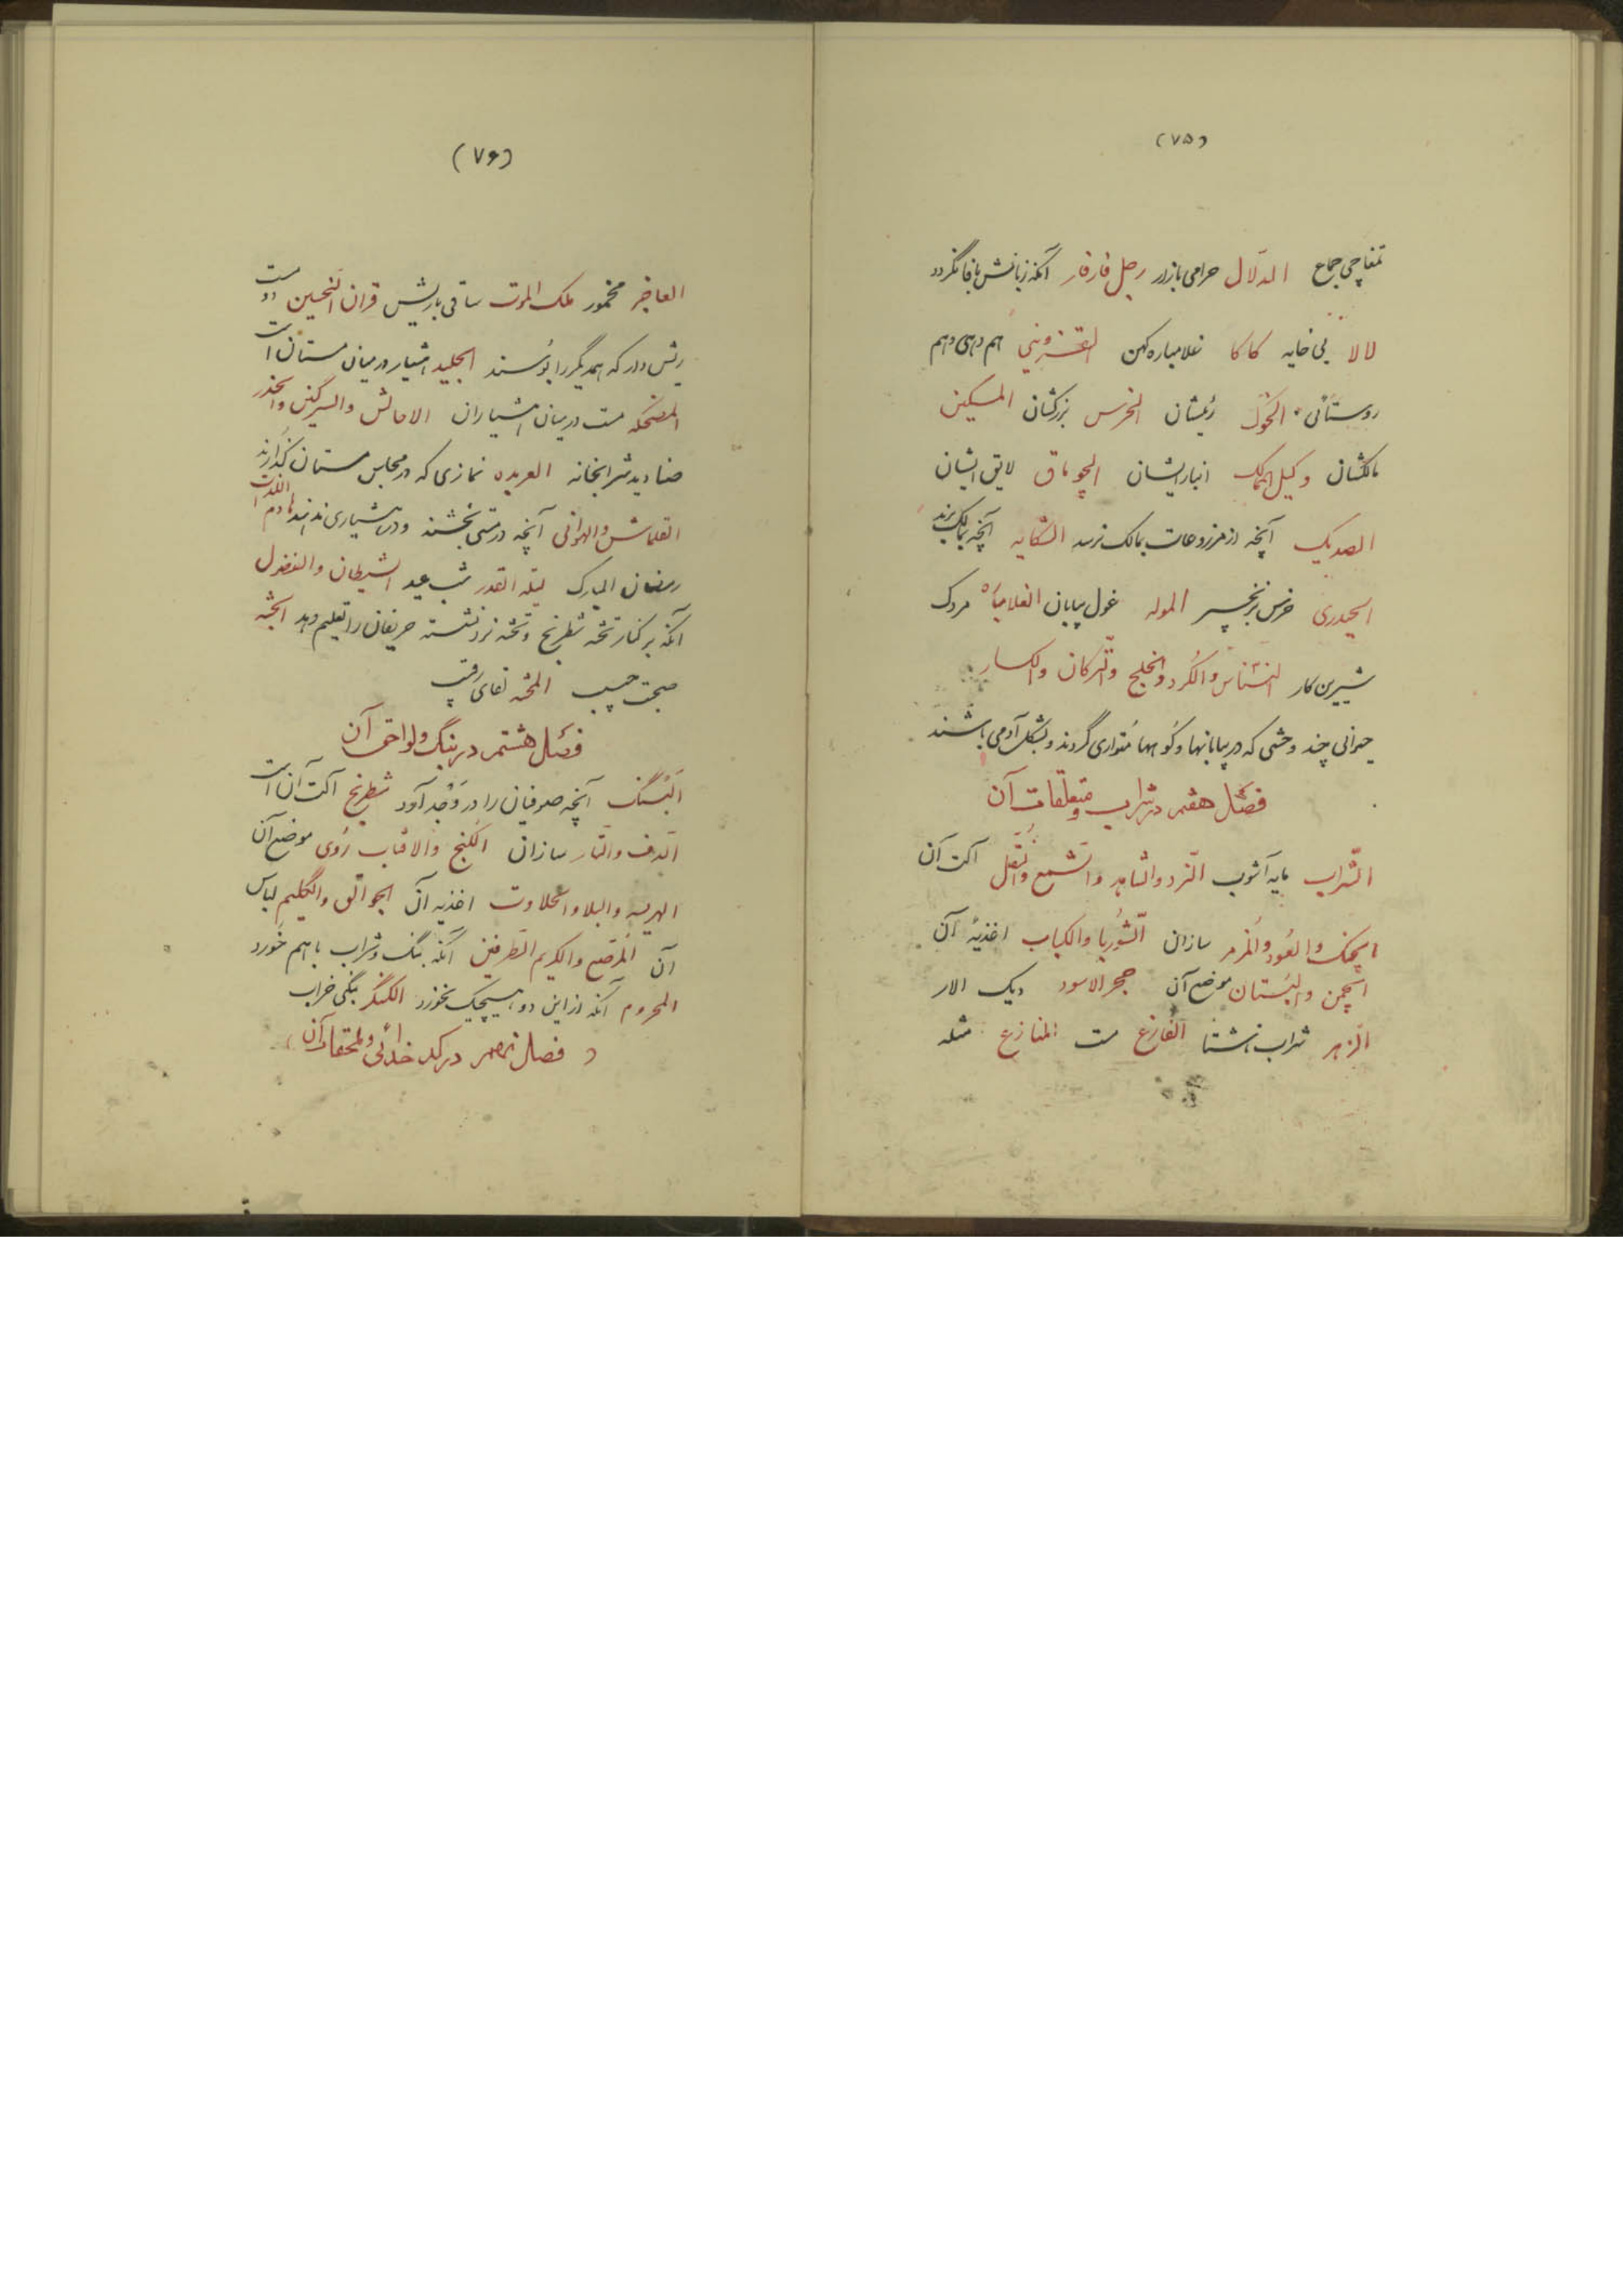 (۷۵)
تمغاچی جماع الدّلال حرامی بازار رجل فارفار آنکه زبانش بافا نگردد
لالا بی خایه کاکا غلامباره کهن القزوینی هم دهی دهم
روستائی الخوک رئیشان الخرس بزرگشان المسکین
مالکشان وکیل الممالک انبار ایشان الچوماق لایق ایشان
الصدیک آنچه از مزروعات بمالک نرسد الشکایه آنچه بمالک برند
الحیدری خرس بزنجیر الموله غول بیابان الغلامباره مردک
شیرین کار النسناس والکُرد والخلج والترکان والکسار
حیوانی چند وحشی که در بیابانها و کوهها متواری گردند و بشکل آدمی باشند
فصل هفتم در شراب و متعلقات آن
الشّراب مایه آشوب النّرد والشاهد والشمع والنّقل آلت آن
الچنگ والعُود والمزمر سازان الشّوربا والکباب اغذیهٔ آن
الچمن والبستان موضع آن حجر الاسود دیک الار
الزهر شراب ناشتا الفازع مست المنازع مثله
(۷۶)
العاجز مخمور ملک الموت ساقی باریش قران النحسین دو مست
ریش دار که همدیگر را بوسند الجلید هشیار در میان مستان است
المضحکه مست در میان هشیاران الاحالش والسرگین والخدر
صنادید شرابخانه العربده نمازی که در مجلس مستان گذارند
القلماش والهوائی آنچه در مستی بخشند و در هشیاری ندهند هادم اللذات
رمضان المبارک لیلة القدر شب عید الشیطان والفضول
آنکه بر کنار تخته شطرنج و تخته نرد نشسته حریفان را تعلیم دهد الجنّه
صحبت حبیب المحنه لقای رقیب
فصل هشتم در بنگ و لواحق آن
البَنگ آنچه صوفیان را در وَجد آورد شطرنج آلت آن است
الدف والتار سازان الکنج والافتاب روی موضع آن
الهریسه والبلاو والحلاوت اغذیه آن الجوالق والگلیم لباس
آن المرصّع والکریم الطرفین آنکه بنگ و شراب با هم خورد
المحروم آنکه از این دو هیچیک نخورد الکنگر بنگی خراب
فصل نهم در کدخدائی و ملحقات آن